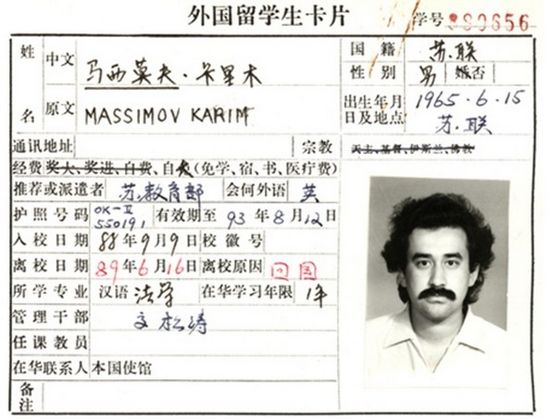 外国留学生卡片 学号 880656
姓 中文 马西莫夫·卡里木 国籍 苏联
性别 男 婚否
名 原文 MASSIMOV KARIM 出生年月日及地点 1965·6·15 苏联
通讯地址 宗教 天主、基督、伊斯兰、佛教
经费 奖大、奖进、自费、自大(免学、宿、书、医疗费)
推荐或派遣者 苏教育部 会何外语 英
护照号码 OK-II 550191 有效期至 93年8月12日
入校日期 88年9月9日 校徽号
离校日期 89年6月16日 离校原因 回国
所学专业 汉语 法学 在华学习年限 1年
管理干部 文松涛
任课教员
在华联系人 本国使馆
备注